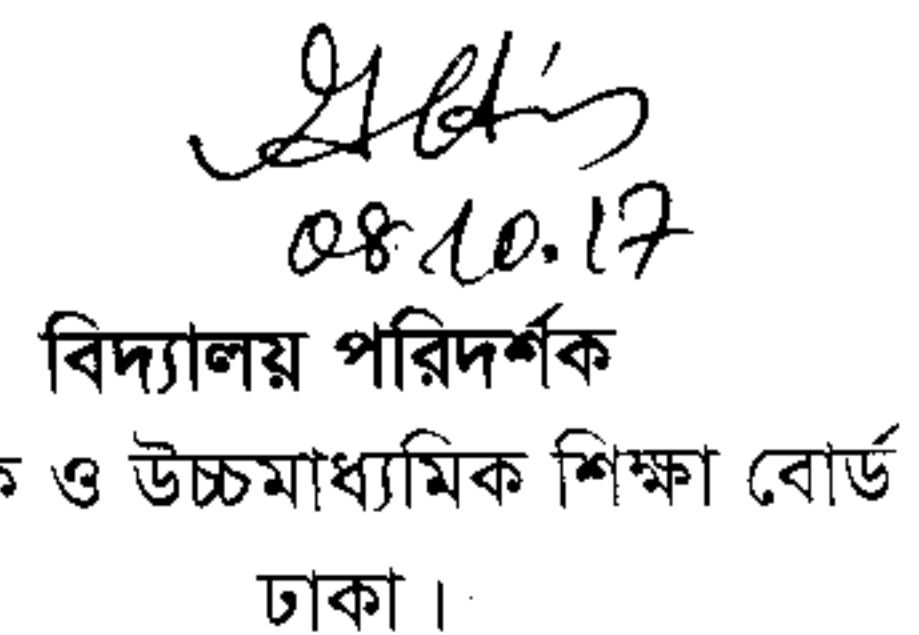 08.10.17
বিদ্যালয় পরিদর্শক
ক ও উচ্চমাধ্যমিক শিক্ষা বোর্ড
ঢাকা।